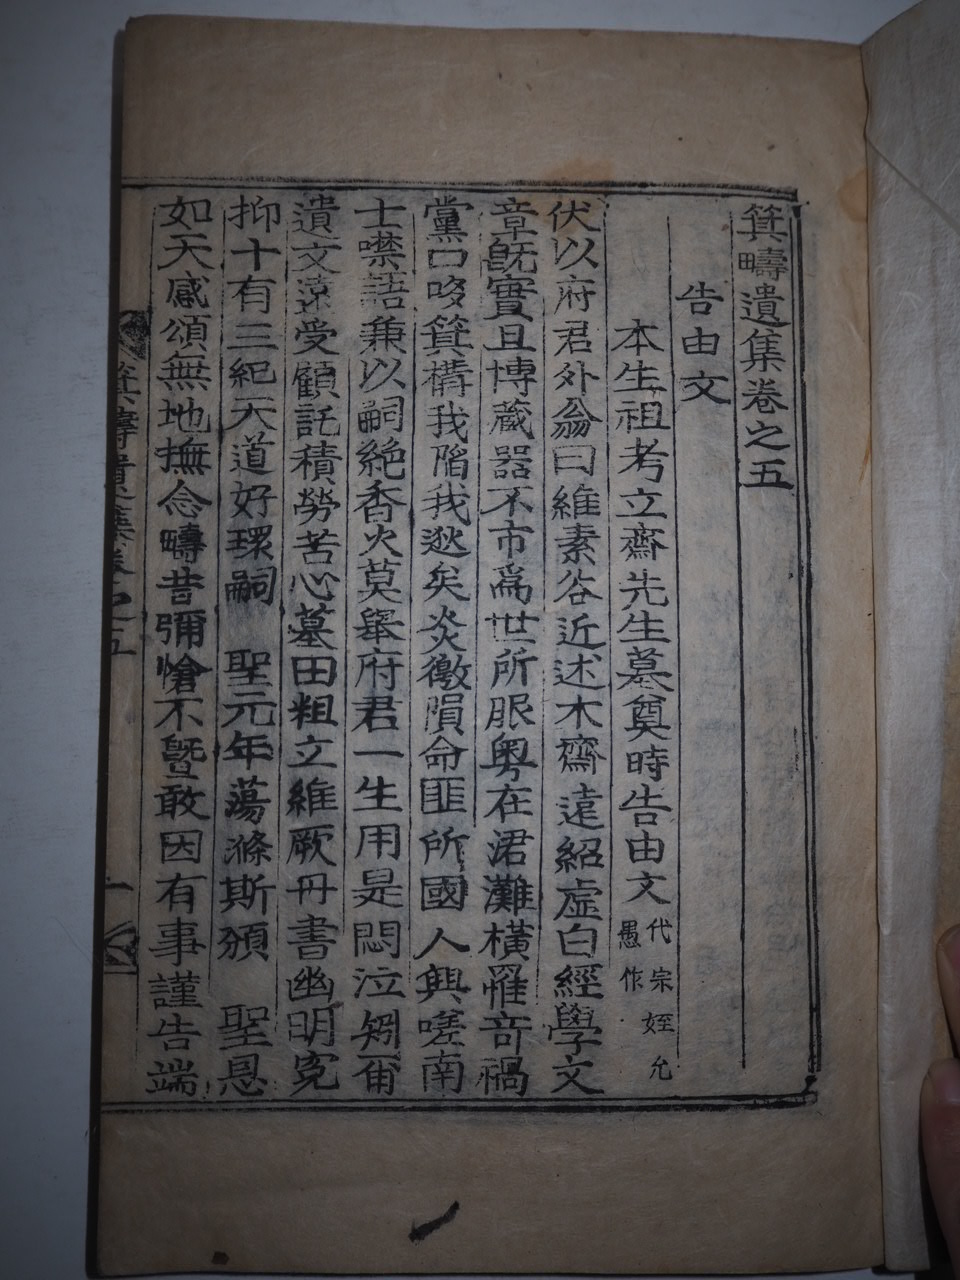 箕疇遺集卷之五
告由文
本生祖考立齋先生墓奠時告由文 代宗姪允愚作
伏以府君外翁曰維素谷近述木齋遠紹虛白經學文
章旣實且博蔵器不市爲世所服粤在涒灘橫罹竒禍
黨口咬箕構我陷我逖矣炎徼隕命匪所國人興嗟南
士噤語兼以嗣絶香火莫擧府君一生用是悶泣矧甫
遺文遠受顧託積勞苦心墓田粗立維厥冊書幽明寃
抑十有三紀天道好環嗣 聖元年蕩滌斯頒 聖恩
如天感頌無地撫念疇昔彌愴不曁敢因有事謹告端
箕疇遺集卷之五 一